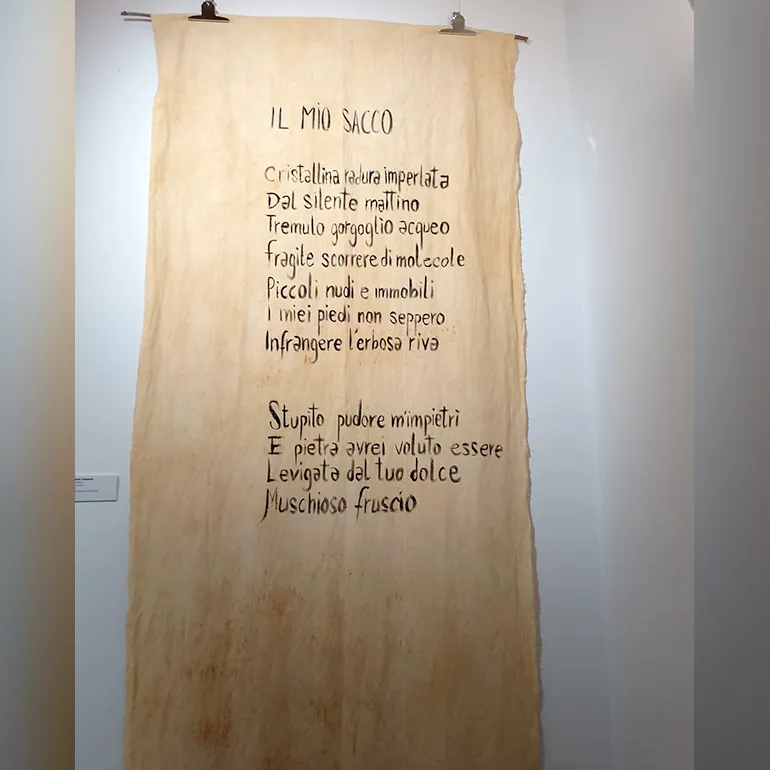 IL MIO SACCO
Cristallina radura imperlata
Dal silente mattino
Tremulo gorgoglio acqueo
fragile scorrere di molecole
Piccoli nudi e immobili
I miei piedi non seppero
Infrangere l'erbosa riva
Stupito pudore m'impietrì
E pietra avrei voluto essere
Levigata dal tuo dolce
Muschioso fruscio